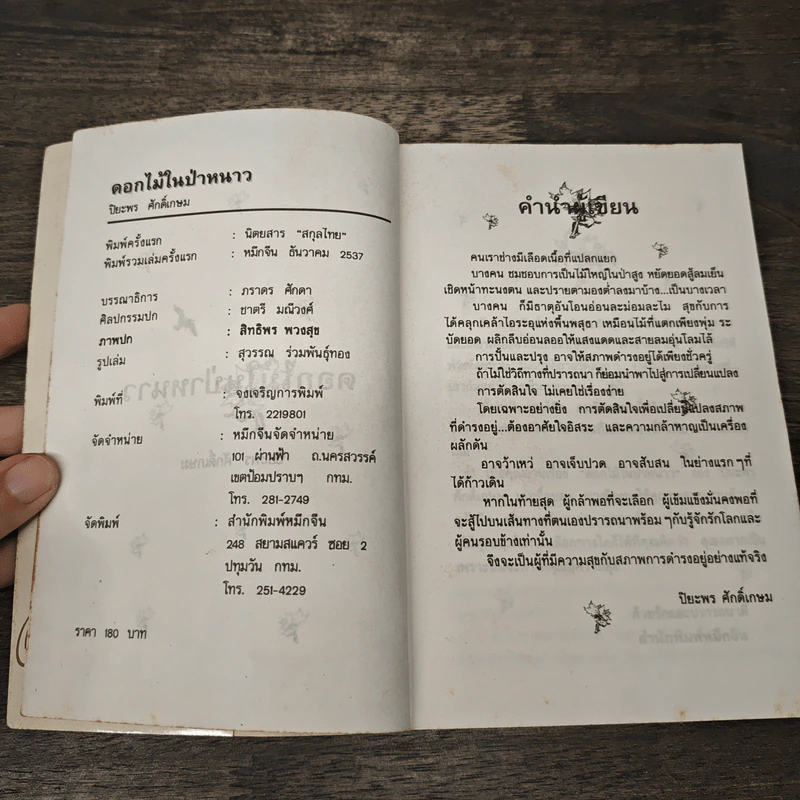 ดอกไม้ในป่าหนาว
ปิยะพร ศักดิ์เกษม
พิมพ์ครั้งแรก : นิตยสาร "สกุลไทย"
พิมพ์รวมเล่มครั้งแรก : หมึกจีน ธันวาคม 2537
บรรณาธิการ : ภราดร ศักดา
ศิลปกรรมปก : ชาตรี มณีวงศ์
ภาพปก : สิทธิพร พวงสุข
รูปเล่ม : สุวรรณ ร่วมพันธุ์ทอง
พิมพ์ที่ : จงเจริญการพิมพ์
โทร. 2219801
จัดจำหน่าย : หมึกจีนจัดจำหน่าย
101 ผ่านฟ้า ถ.นครสวรรค์
เขตป้อมปราบฯ กทม.
โทร. 281-2749
จัดพิมพ์ : สำนักพิมพ์หมึกจีน
248 สยามสแควร์ ซอย 2
ปทุมวัน กทม.
โทร. 251-4229
ราคา 180 บาท
คำนำผู้เขียน
คนเราช่างมีเลือดเนื้อที่แปลกแยก
บางคน ชมชอบการเป็นไม้ใหญ่ในป่าสูง หยัดยอดสู้ลมเย็น
เชิดหน้าทะนงตน และปรายตามองต่ำลงมาบ้าง...เป็นบางเวลา
บางคน ก็มีธาตุอันโอนอ่อนละม่อมละไม สุขกับการ
ได้คลุกเคล้าไอระอุแห่งพื้นพสุธา เหมือนไม้ที่แตกเพียงพุ่ม ระ
บัดยอด ผลิกลีบอ่อนลออให้แสงแดดและสายลมอุ่นโลมไล้
การปั้นและปรุง อาจให้สภาพดำรงอยู่ได้เพียงชั่วครู่
ถ้าไม่ใช่วิถีทางที่ปรารถนา ก็ย่อมนำพาไปสู่การเปลี่ยนแปลง
การตัดสินใจ ไม่เคยใช่เรื่องง่าย
โดยเฉพาะอย่างยิ่ง การตัดสินใจเพื่อเปลี่ยนแปลงสภาพ
ที่ดำรงอยู่...ต้องอาศัยใจอิสระ และความกล้าหาญเป็นเครื่อง
ผลักดัน
อาจว้าเหว่ อาจเจ็บปวด อาจสับสน ในย่างแรก ๆ ที่
ได้ก้าวเดิน
หากในท้ายสุด ผู้กล้าพอที่จะเลือก ผู้เข้มแข็งมั่นคงพอที่
จะสู้ไปบนเส้นทางที่ตนเองปรารถนาพร้อม ๆ กับรู้จักรักโลกและ
ผู้คนรอบข้างเท่านั้น
จึงจะเป็นผู้ที่มีความสุขกับสภาพการดำรงอยู่อย่างแท้จริง
ปิยะพร ศักดิ์เกษม